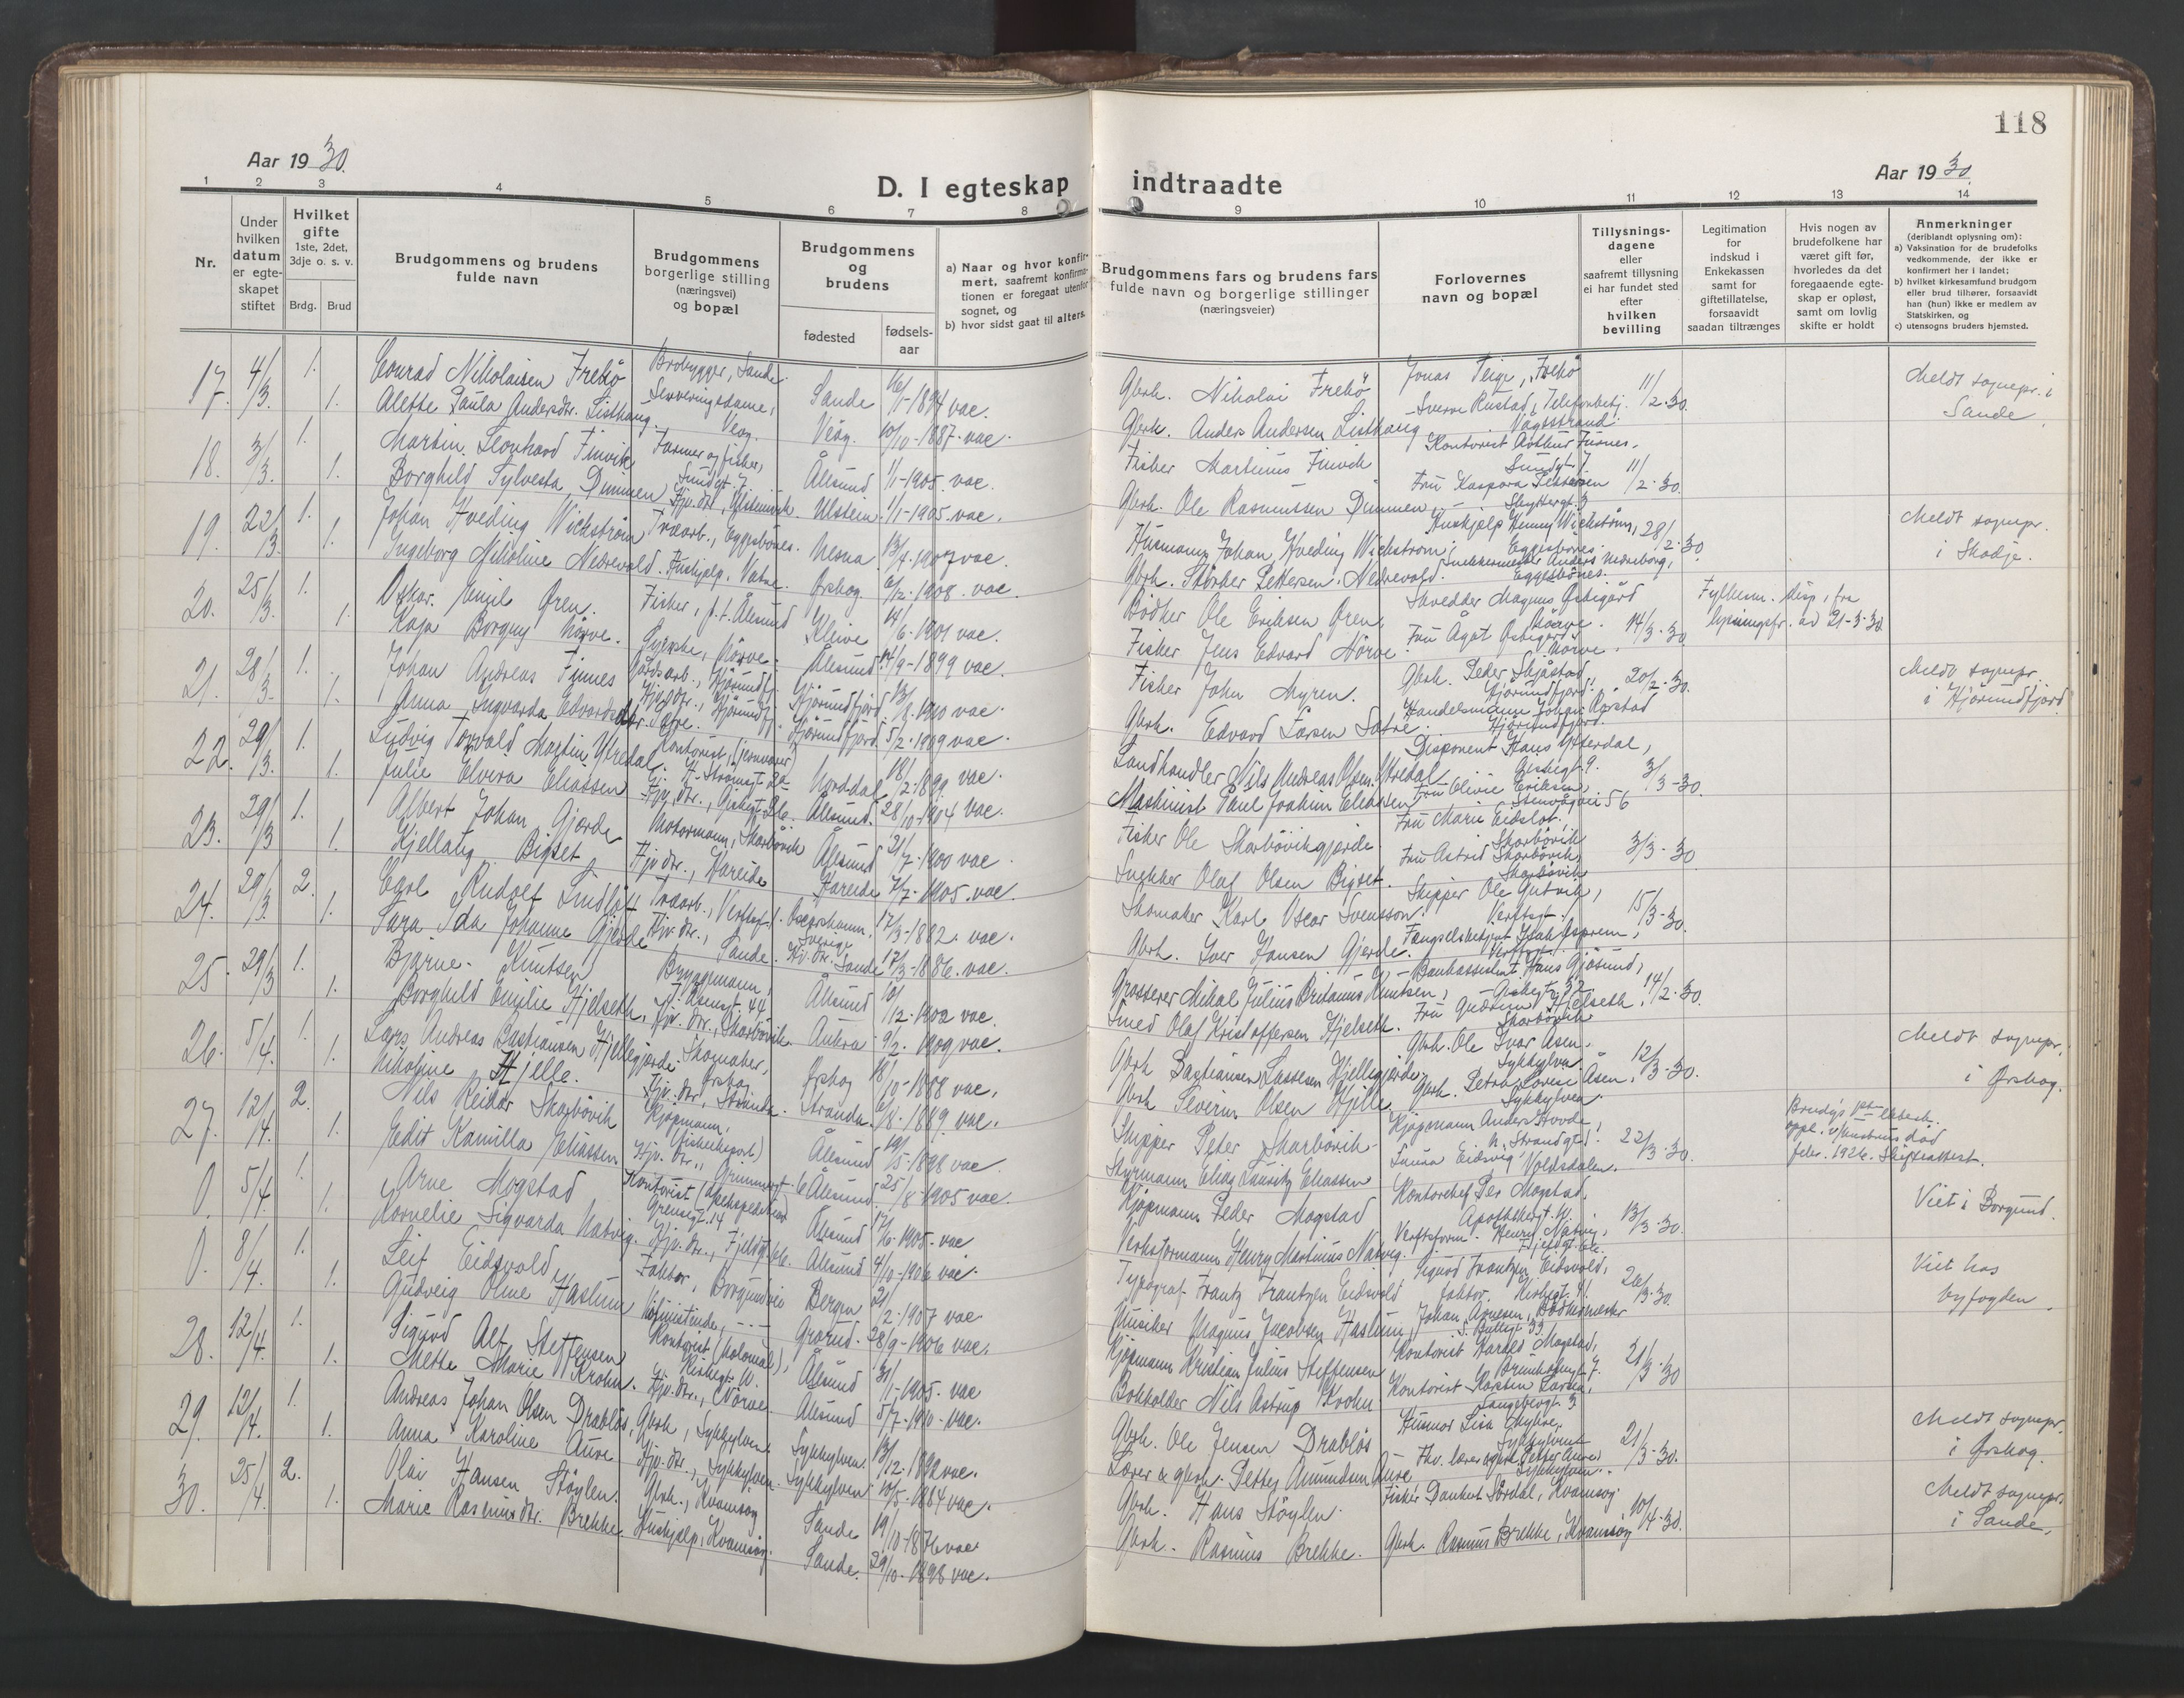 118
Aar 1930.
D. I egteskap indtraadte
Aar 1930
1 2 3 4 5 6 7 8 9 10 11 12 13 14
Nr.
Under hvilken datum er egte- skapet stiftet
Hvilket gifte 1ste, 2det, 3dje o. s. v.
Brdg. Brud
Brudgommens og brudens fulde navn
Brudgommens borgerlige stilling (næringsvei) og bopæl
Brudgommens og brudens
fødested
fødsels- aar
a) Naar og hvor konfir- mert, saafremt konfirma- tionen er foregaat utenfor sognet, og
b) hvor sidst gaat til alters.
Brudgommens fars og brudens fars fulde navn og borgerlige stillinger (næringsveier)
Forlovernes navn og bopæl
Tillysnings- dagene eller saafremt tillysning ei har fundet sted efter hvilken bevilling
Legitimation for indskud i Enkekassen samt for giftetillatelse, forsaavidt saadan tiltrænges
Hvis nogen av brudefolkene har været gift før, hvorledes da det foregaaende egte- skap er opløst, samt om lovlig skifte er holdt
Anmerkninger (deriblandt oplysning om):
a) Vaksination for de brudefolks vedkommende, der ikke er konfirmert her i landet;
b) hvilket kirkesamfund brudgom eller brud tilhører, forsaavidt han (hun) ikke er medlem av Statskirken, og
c) utensogns bruders hjemsted.
17. 4/3. 1. Conrad Nikolaisen Frekö Brobygger, Sande. Sande 16/1-1894 vac. Gbrk. Nikolai Frekö Jonas Teige, Frekö 11/2.30. Meldt sognepr. i Sande.
1. Alette Paula Andersdtr. Listhaug. Serveringsdame, Veøy. Veøy. 10/10-1887. vac. Gbrk. Anders Andersen Listhaug Sverre Rustad, Telefonbetj. Vågstrand.
18. 3/3. 1. Martin Leonhard Finvik Farmer og fisker, Sundgt. 7. Ålesund 1/1-1905. vac. Fisker Martinus Finvik Kontorist Arthur Furnes, Sundgt. 7. 11/2.30.
1. Borghild Sylvesta Dimmen Hjv. dtr., Ulsteinvik. Ulstein 1/1-1905. vac. Gbrk. Ole Rasmussen Dimmen Fru Kaspara Pettersen
19. 22/3. 1. Johan Hveding Wickström Trearb., Eggesbönes. Nesna 13/4-1907 vac. Husmann Johan Hveding Wickström. Huskjelp Jenny Wickström, Eggesbönes. 28/2.30 Meldt sognepr. i Skodje.
1. Ingeborg Nikoline Nedrevold. Huskjelp, Vatne. Ørskog 6/12-1908. vac. Gbrk. Pettersen Nedrevold. Snekkermester Anders Nedreborg, Eggesbönes.
20. 25/3. 1. Oskar Emil Øren. Fisker, p.t. Ålesund Kleive 14/6-1901 vac. Bödker Ole Eriksen Øren, Skredder Magnus Østigård Nörve. 14/3.30 Fylkesm. disp. fra lysningsfr. av 21-3-30
1. Kaja Borgny Nörve. Nörve. Ålesund 14/9-1899 vac. Fisker Jens Edvard Nörve. Fru Ågot Østigård Nörve.
21. 28/3. 1. Johan Andreas Finnes Gårdsarb., Hjörundfj. Hjörundfjord 13/8-1910 vac. Fisker John Myren. Gbrk. Peder Skjåstad Hjörundfjord. 20/2.30. Meldt sognepr. i Hjörundfjord
1. Anna Ingvarda Edvardsdtr. Sætre. Hjv. dtr., Hjörundfj. Hjörundfjord 5/2-1909 vac. Gbrk. Edvard Larsen Sætre. Handelsmann Johan Rörstad Hjörundfjord.
22. 29/3. 1. Ludvig Torvald Martin Ytredal. Kontorist (jernvarer) Norddal 18/2-1899. vac. Landhandler Nils Andreas Olsen Ytredal Disponent Hans Ytterdal, Giskegt 9. 3/3-30.
1. Julie Elvira Eliassen Hjv. dtr., Ålesund. 28/10-1904 vac. Maskinist Paul Joakim Eliassen Fru Olivie Eriksen, Stenvågvei 56
23. 29/3 1. Albert Johan Gjerde Motormann, Skarbövik Ålesund 21/7-1900 vac. Fisker Ole Skarbövikgjerde. Fru Marie Eidslot, Skarbövik 3/3-30
1. Kjellaug Bigset Hjv. dtr., Hareide Hareide 7/7-1905. vac. Snekker Olaf Olsen Bigset. Fru Astrid Skarbövik, Skarbövik
24. 29/3. 2. Carl Rudolf Trearb., Verftsgt. 1. Oscarshamn, Sverige 17/3-1882. vac. Skomaker Karl Oscar Svensson. Skipper Ole Gutvik, Verftsgt. 15/3-30.
1. Sara Ida Johanne Gjerde Hjv. dtr., Sande. Sande 17/3-1886. vac. Gbrk. Iver Hansen Gjerde.
25. 29/3 1. Bjarne Knutsen Bryggemann, Ålesund 10/12-1902 vac. Grosserer Mikal Julius Britanus Knutsen, Bankassistent Hans Gjösund, Giskegt 32 14/2.30.
1. Borghild Emilie Hjelseth, Hjv. dtr., Skarbövik. Aukra 9/2-1909 vac. Smed Olaf Kristoffersen Hjelseth. Fru Gudrun Hjelseth, Skarbövik
26. 5/4. 1. Lars Andreas Bastiansen Hjellegjerde. Skomaker, Ørskog Ørskog 18/10-1888 vac. Gbrk Bastiansen Lassesen Hjellegjerde. Gbrk. Ole Ivar Åsen, Sykkylven 12/3-30. Meldt sognepr. i Ørskog.
1. Nikoline Hjelle. Hjv. dtr., Stranda. Stranda 6/8-1889 vac. Gbrk Severin Olsen Hjelle. Gbrk. Petra Lovise Åsen, Sykkylven.
27. 12/4. 2. Nils Reidar Skarbövik Kjøpmann, (fiskeeksport) Ålesund 19/5-1898 vac. Skipper Peder Skarbövik Kjøpmann Anders Hovde, N. Strandgt 1. 22/3-30. oppl. v/hustrus död febr. 1926. Skifteattest.
1. Edit Kamilla Eliassen Hjv. dtr., Grimmergt 6 Ålesund 25/8-1905 vac. Styrmann Elias Lauritz Eliassen Eidsvig Voldsdalen.
0. 5/4. 1. Arne Mogstad Kontorist Grensegt. 14 Ålesund 17/6-1905. vac Kjøpmann Peder Mogstad Kontorchef Per Mogstad, Apothekergt. 13/3-30. Viet i Borgund.
1. Kornelie Sigvarda Natvig. Hjv. dtr., Fjeldgt. Ålesund 4/10-1906 vac. Verksformann Henry Martinus Natvig. Verftsform. Henry Natvig,
0. 8/4. 1. Leif Eidsvold Faktor, Borgundvei Bergen 21/2-1907 vac Typograf Frantz Frantzen Eidsvold Sigurd Frantzen Eidsvold, faktor, Kirkegt. 26/3.30. Viet hos byfogden.
1. Gudveig Oline Haslum Grorud. 28/9-1906 vac. Musiker Magnus Jacobsen Haslum Johan Arnesen, Bödkermester
28. 12/4. 1. Sigurd Alf Steffensen Kontorist (kolonial), Ålesund 31/1-1905. vac Kjøpmann Kristian Julius Steffensen Kontorist Harald Mogstad, Brunholmgt. 7. 21/3-30
1. Mette Marie Krohn. Hjv. dtr., Nörve. Ålesund 5/7-1910 vac. Bokholder Nils Astrup Krohn Kontorist Karsten Larsen,
29. 12/4. 1. Andreas Johan Olsen Drabløs, Gbrk., Sykkylven Sykkylven. 13/12-1892 vac. Gbrk. Ole Jensen Drabløs Lisa Myhre, Sykkylven 21/3-30. Meldt sognepr. i Ørskog.
1. Anna Karoline Aure Hjv. dtr., Sykkylven. Sykkylven 10/5-1884 vac. Lærer & gbrk. Petter Amundsen Aure Fhv. lærer Petter Aure, Sykkylven.
30. 25/4. 2. Olai Hansen Stöylen. Gbrk., Kvamsøy Sande 19/10-1876 vac. Gbrk. Hans Stöylen. Fisker Sördal, Kvamsøy 10/4-30. Meldt sognepr. i Sande.
1. Marie Rasmusdtr. Brekke. Huskjelp, Kvamsøy. Sande. 29/10-1898 vac. Gbrk. Rasmus Brekke. Gbrk. Rasmus Brekke, Kvamsøy